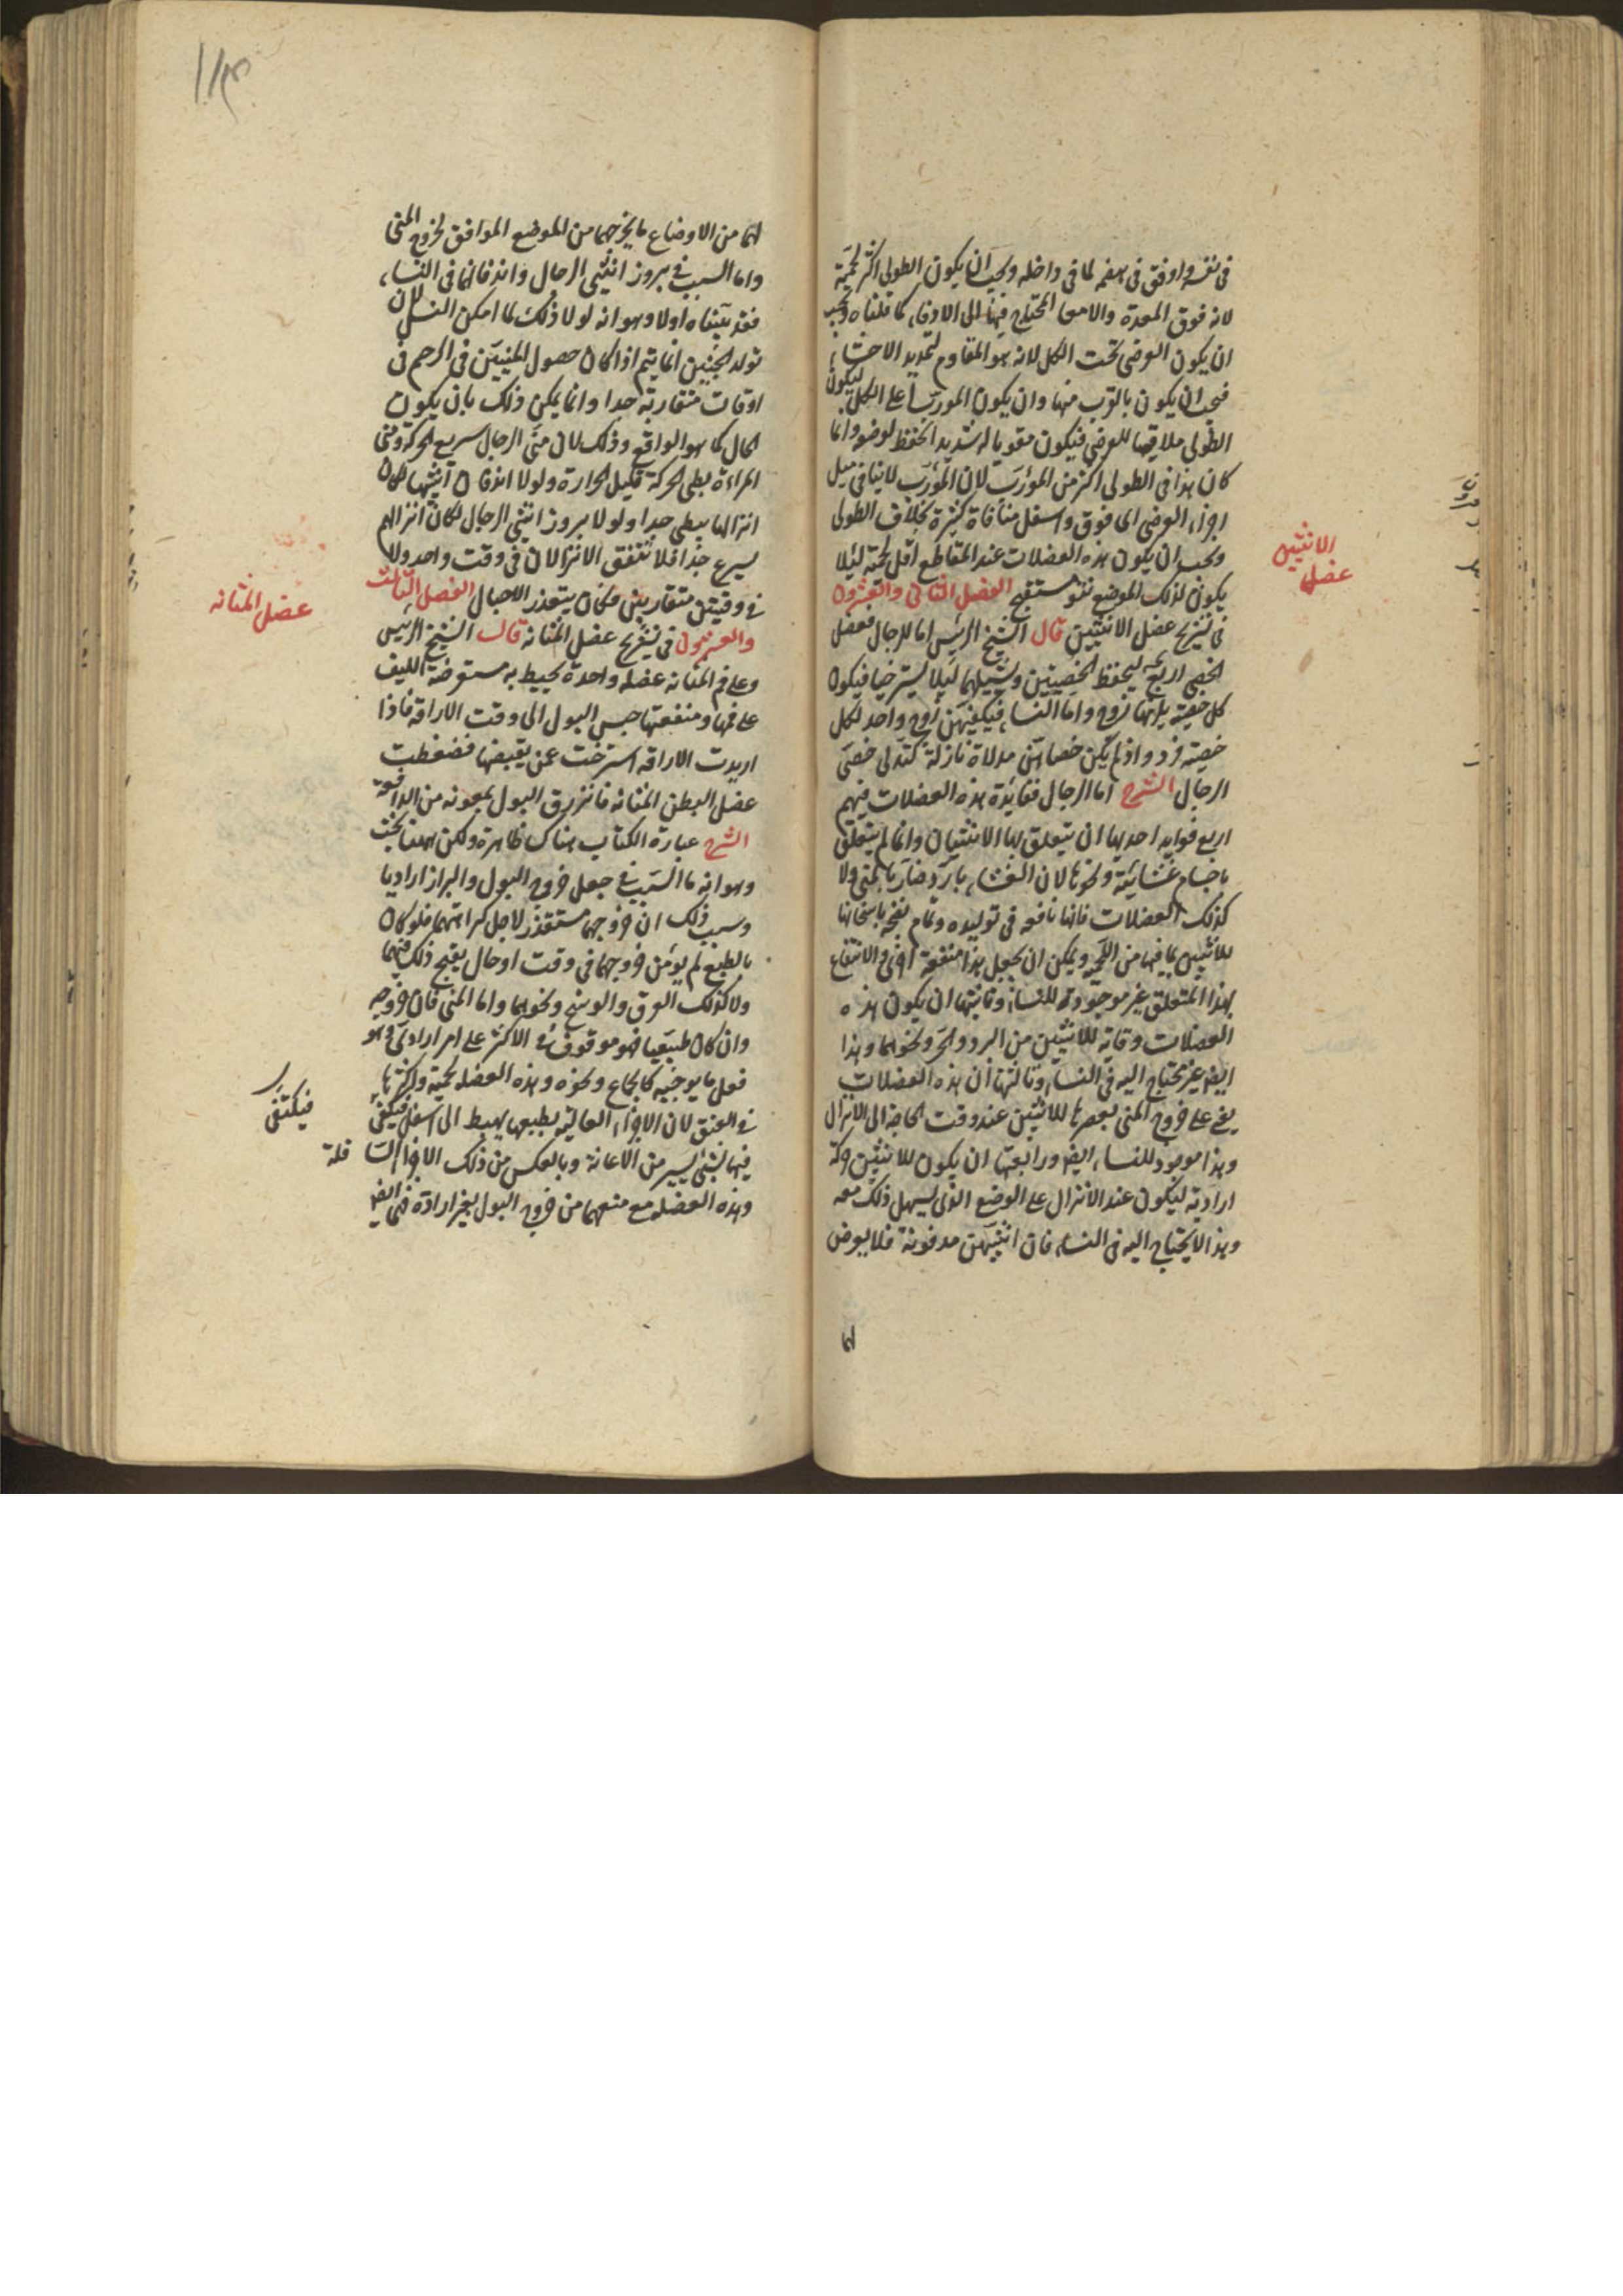 في نفسه واوفق في هضمه لما في داخله ويجب ان يكون الطولى اكثر لحمية
لانه فوق المعدة والامعا المحتاج فيها الى الادفاء كما قلناه ويجب
ان يكون العرضى تحت الكل لانه هو المقاوم لتمديد الاحشاء
فيجب ان يكون بالقرب منها وان يكون المورب اعلى الكل ليكون
الطولى ملاقيا للعرضى فيكون مقويا له شديد الحفظ لوضعه وانما
كان هذا في الطولى اكثر من المؤرب لان المؤرب لا ينافى ميل
اجزاء العرضى الى فوق واسفل منافاة كثيرة بخلاف الطولى
ويجب ان يكون هذه العضلات عند المقاطع اقل لحمية لئلا
يكون لذلك الموضع نتو مستقبح الفصل الثانى والعشرون
في تشريح عضل الانثيين قال الشيخ الرئيس اما للرجال فعضل
الخصى اربع ليحفظ الخصيتين ويشيلهما لئلا يسترخيا فيكون
كل خصية يليها زوج واما النساء فيكفيهن زوج واحد لكل
خصية فرد واذ لم يكن خصاهن مدلاة نازلة كتدلى خصى
الرجال الشرح اما الرجال ففائدة هذه العضلات فيهم
اربع فوايد احديها ان يتعلق بها الانثيان وانما لم يتعلق
باجسام غشائية ونحوها لان الغشاء بارد ضار بالمنى ولا
كذلك العضلات فانها نافعه في توليده وتمام نضجه باسخانها
للانثيين بما فيها من اللحمية ويمكن ان يجعل هذا منفعة اخرى والانتفاع
بهذا المتعلق غير موجودة للنساء وثانيتها ان يكون هذه
العضلات وقاية للانثيين من البرد والحر ونحوهما وهذا
ايضا غير محتاج اليه في النساء وثالثتها ان هذه العضلات
يعين على خروج المنى بعصرها للانثيين عند وقت الحاجة الى الانزال
وهذا موجود للنساء ايضا ورابعتها ان يكون للانثيين حركة
ارادية ليكون عند الانزال على الوضع الذى يسهل ذلك معه
وهذا لا يحتاج اليه في النساء فان انثييهن مدفونة فلا يعرض
لها
الانثيين
عضل
لهما من الاوضاع ما يخرجهما من الموضع الموافق لخروج المنى
واما السبب في بروز انثيى الرجال واندفانهما في النساء
فقد بيناه اولا وهو انه لولا ذلك لما امكن النسل لان
تولد الجنين انما يتم اذا كان حصول المنيين في الرحم في
اوقات متقاربة جدا وانما يمكن ذلك بان يكون
الحال كما هو الواقع وذلك لان منى الرجال سريع الحركة ومنى
المراءة بطى الحركة قليل الحرارة ولولا اندفان انثييها لكان
انزالها يبطى جدا ولولا بروز انثيى الرجال لكان انزالهم
يسرع جدا فلا يتفق الانزالان في وقت واحد ولا
في وقتين متقاربين فكان يتعذر الاحبال الفصل الثالث
والعشرون في تشريح عضل المثانة قال الشيخ الرئيس
وعلى فم المثانه عضله واحدة يحيط به مستعرضة الليف
على فمها ومنفعتها حبس البول الى وقت الاراقة فاذا
اريدت الاراقه استرخت عن يقبضها فضغطت
عضل البطن المثانه فانزرق البول بمعونه من الدافعة
الشرح عبارة الكتاب هناك ظاهرة ولكن ههنا بحث
وهو انه ما السبب في جعل خروج البول والبراز اراديا
وسبب ذلك ان خروجهما مستقذر لاجل كراهتهما فلو كان
بالطبع لم يؤمن خروجهما في وقت او حال يقبح ذلك فيهما
ولا كذلك العرق والوسخ ونحوهما واما المنى فان خروجه
وان كان طبيعيا فهو موقوف في الاكثر على امر ارادى وهو
فعل ما يوجبه كالجماع ونحوه وهذه العضله لحمية واكثرها
في العنق لان الاجزاء العالية بطبعها يهبط الى اسفل فيكفى
فيها بشئ يسير من الاعانة وبالعكس من ذلك الاجزاء السافلة
وهذه العضله مع منعهما من خروج البول بغير ارادة فهما ايضا
عضل المثانه
فيكتفى